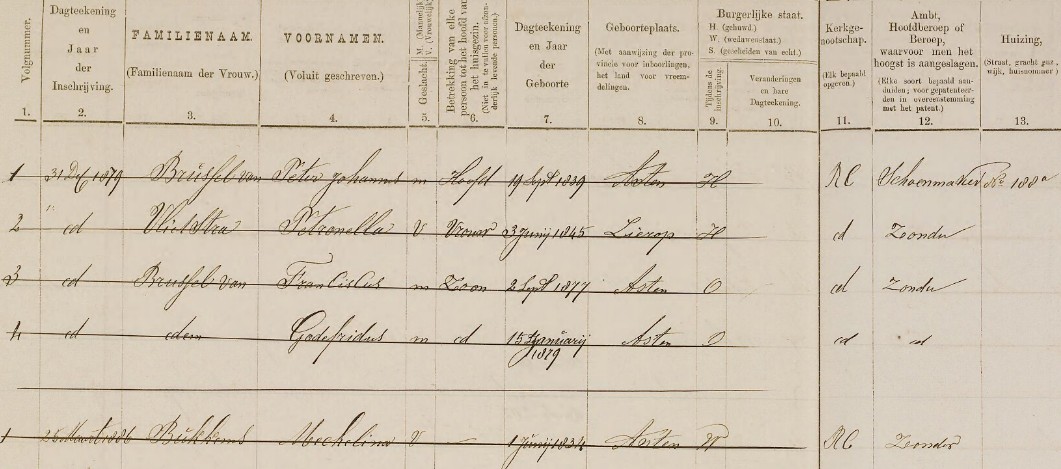 Volgnummer. Dagteekening en Jaar der Inschrijving. FAMILIENAAM. (Familienaam der Vrouw.) VOORNAMEN. (Voluit geschreven.) Geslacht. M. (Mannelijk) V. (Vrouwelijk) Betrekking van elke persoon tot het hoofd van het huisgezin. (Niet in te vullen voor afzonderlijk levende personen.) Dagteekening en Jaar der Geboorte Geboorteplaats. (Met aanwijzing der provincie voor inboorlingen, het land voor vreemdelingen. Burgerlijke staat. H. (gehuwd.) W. (weduwenstaat.) S. (gescheiden van echt.) Tijdens de inschrijving. Veranderingen en hare Dagteekening. Kerkgenootschap. (Elk bepaald opgeven.) Ambt, Hoofdberoep of Beroep, waarvoor men het hoogst is aangeslagen. (Elke soort bepaald aanduiden; voor gepatenteerden in overeenstemming met het patent.) Huizing, (Straat, gracht enz., wijk, huisnommer)
1. 2. 3. 4. 5. 6. 7. 8. 9. 10. 11. 12. 13.
1 31 Dec 1879 Brussel van Peter Johannes m Hoofd 19 Sept 1839 Asten H RC Schoenmaker No 188a
2 " cd Petronella V Vrouw 3 Junij 1845 Lierop H cd Zonder
3 cd Brussel van Franciscus m Zoon 2 Sept 1877 Asten O cd Zonder
4 cd edem Godefridus m cd 15 Januarij 1879 Asten O cd cd
1 Maart 1886 Bukkems Mechelina V — 1 Junij 1834 Asten W RC Zonder